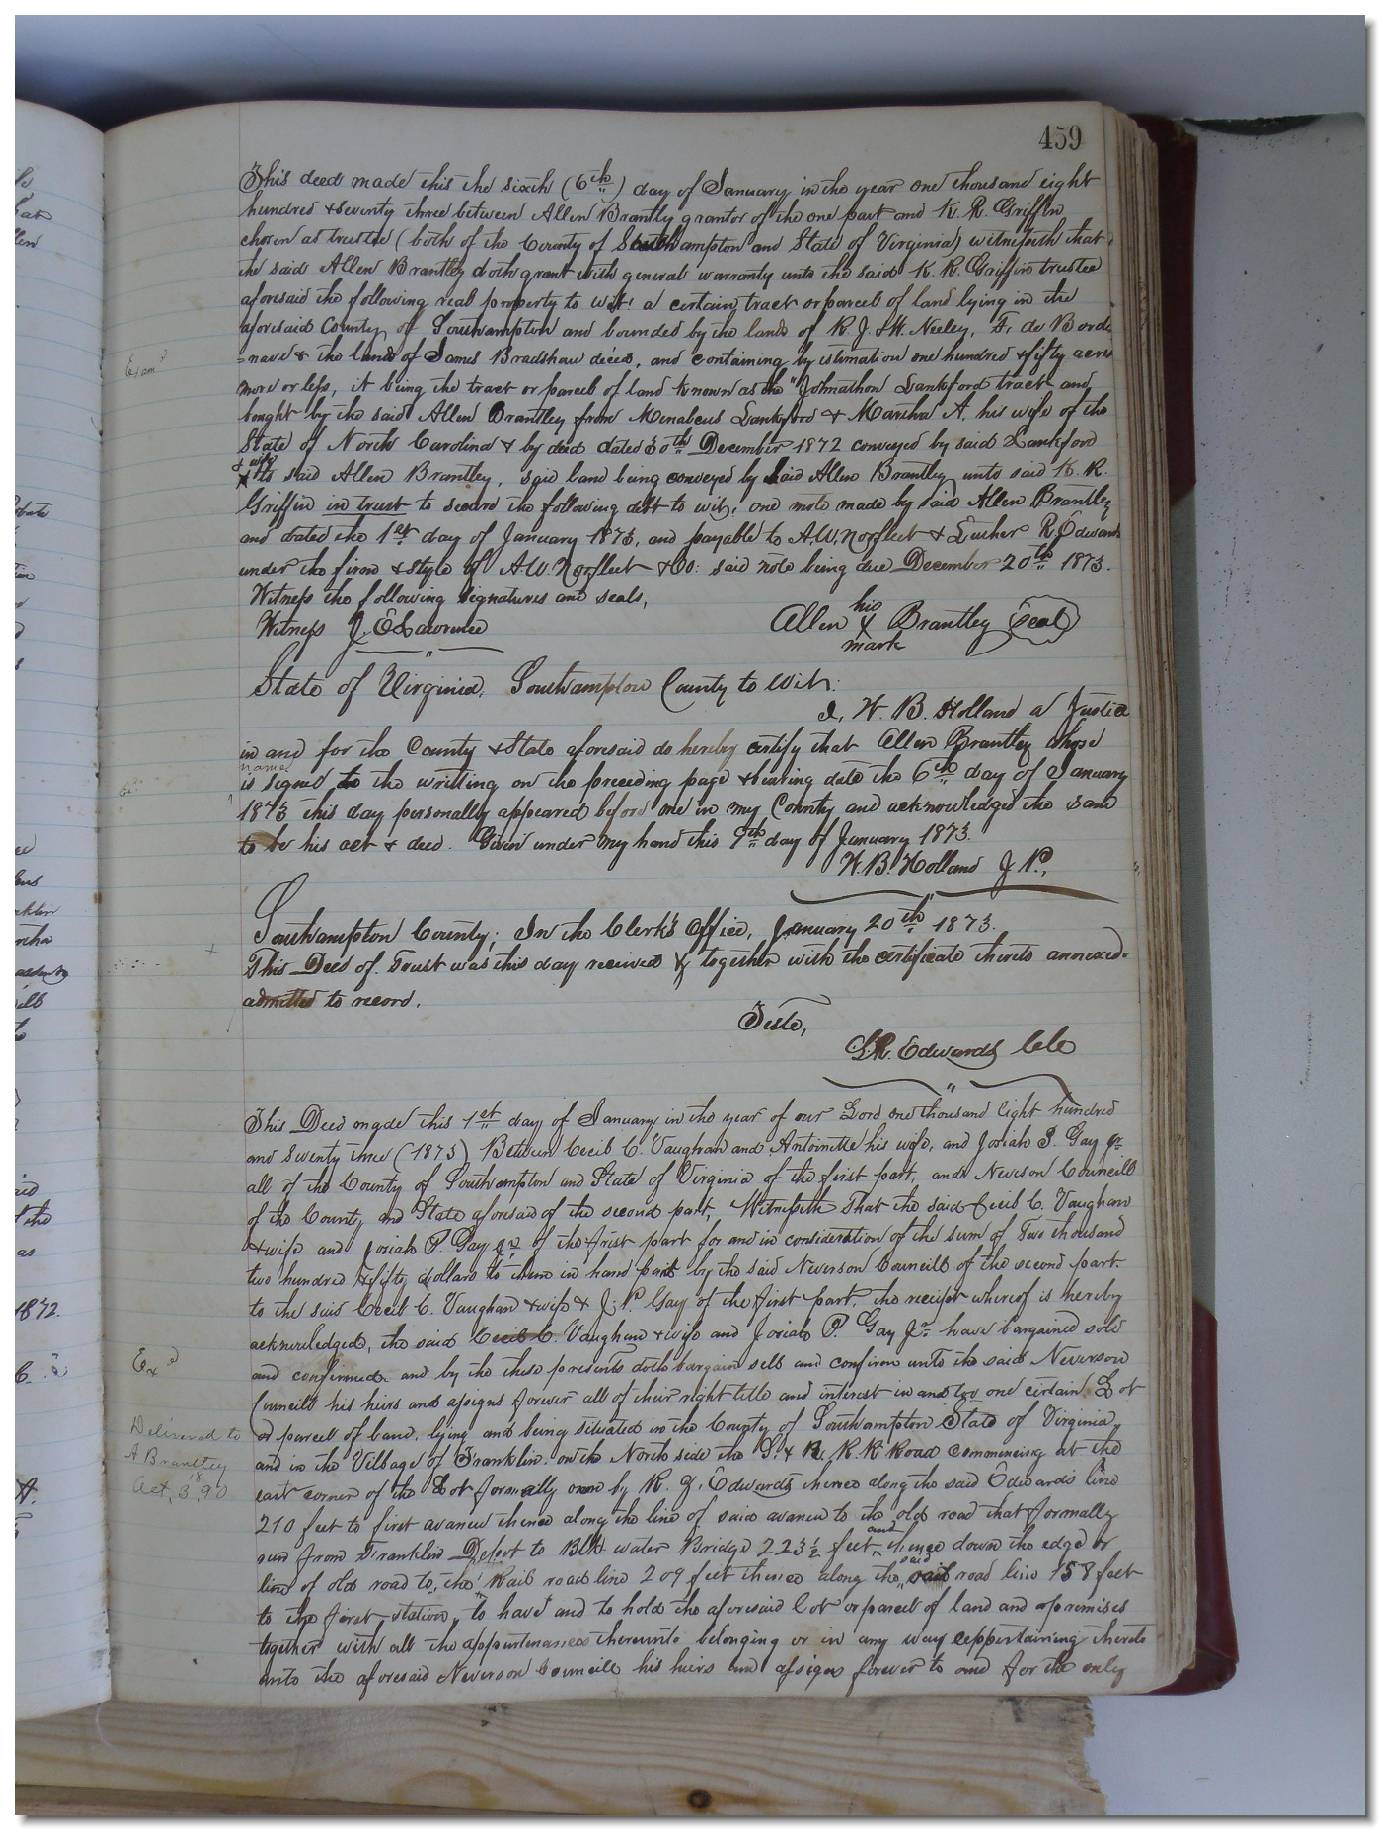 459
This deed made this the sixth (6th) day of January in the year one thousand eight
hundred & seventy three between Allen Brantly grantor of the one part and K. R. Griffin
chosen as trustee (both of the County of Southampton and State of Virginia) witnesseth that
the said Allen Brantley doth grant with general warranty unto the said K. R. Griffin trustee
aforesaid the following real property to wit: a certain tract or parcel of land lying in the
aforesaid County of Southampton and bounded by the lands of R. J. & W. Neeley, F. de Borde
=nave & the lands of James Bradshaw dec'd, and containing by estimation one hundred & fifty acres
more or less, it being the tract or parcel of land known as the "Johnathon Lankford tract and
bought by the said Allen Brantley from Menalcus Lankford & Martha A. his wife of the
State of North Carolina & by deed dated 30th December 1872 conveyed by said Lankford
& wife
to said Allen Brantley, said land being conveyed by said Allen Brantley unto said K. R.
Griffin in trust to secure the following debt to wit; one note made by said Allen Brantley
and dated the 1st day of January 1873, and payable to A.W. Norfleet & Luther R. Edwards
under the firm & style of A.W. Norfleet & Co: said note being due December 20th 1873.
Witness the following signatures and seals,
his
Witness J. E. Lawrence Allen X Brantley Seal
mark
State of Virginia, Southampton County to wit:
I, W. B. Holland a Justice
in and for the County & State aforesaid do hereby certify that Allen Brantley whose
name
is signed to the writting on the preceeding page & bearing date the 6th day of January
1873 this day personally appeared before me in my County and acknowledged the same
to be his act & deed. Given under my hand this 9th day of January 1873.
W. B. Holland J.P.
Southampton County; In the Clerk's Office, January 20th 1873.
This Deed of Trust was this day received & together with the certificate thereto annexed
admitted to record.
Teste,
L.R. Edwards Clc
This Deed made this 1st day of January in the year of our Lord one thousand eight hundred
and seventy three (1873) Between Cecil C. Vaughan and Antoinette his wife, and Josiah P. Gay Jr
all of the County of Southampton and State of Virginia of the first part, and Neverson Councill
of the County and State aforesaid of the second part, Witnesseth That the said Cecil C. Vaughan
& wife and Josiah P. Gay Jr of the frist part for and in consideration of the sum of Two thousand
two hundred & fifty dollars to them in hand paid by the said Neverson Councill of the second part
to the said Cecil C. Vaughan & wife & J. P. Gay of the first part, the receipt whereof is hereby
acknowledged, the said Cecil C. Vaughan & wife and Josiah P. Gay Jr have bargained sold
Exd
and confirmed and by the these presents doth bargain sell and confirm unto the said Neverson
Councill his heirs and assigns forever all of their right title and interest in and to one certain Lot
Delivered to
A Brantley
Oct, 3, 1890
or parcel of land, lying and being situated in the County of Southampton State of Virginia
and in the Village of Franklin on the North side the S. & R. R. R Road commencing at the
east corner of the Lot formally own by R. J. Edwards thence along the said Edwards line
210 feet to first avanew thence along the line of said avanew to the old road that formally
run from Franklin Depot to Blk water Bridge 223½ feet and thence down the edge or
line of old road to, the Rail road line 209 feet thence along the said road line 158 feet
to the first station, to have and to hold the aforesaid lot or parcel of land and premises
together with all the appurtenances thereunto belonging or in any way appertaining thereto
unto the aforesaid Neverson Councill his heirs and assigns forever to and for the only